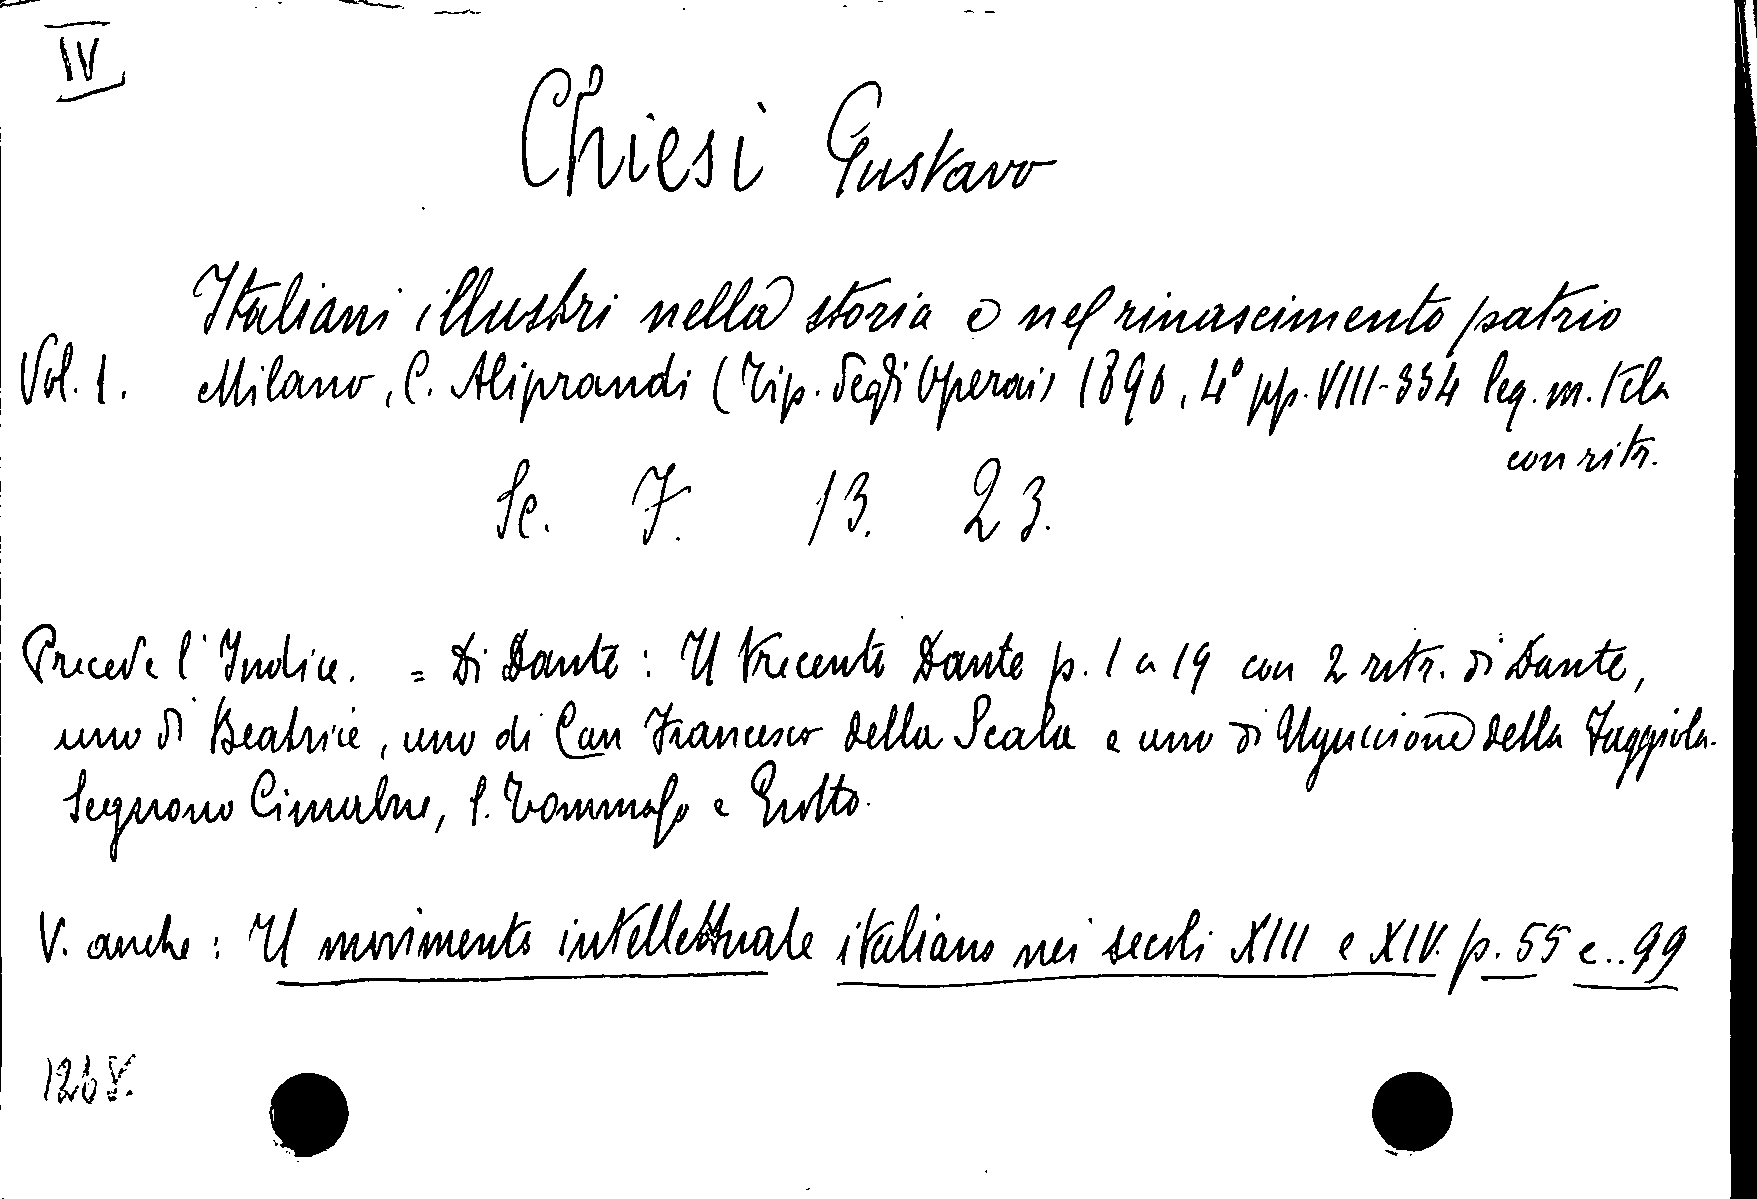 IV
Chiesi Gustavo
Italiani illustri nella storia e nel rinascimento patrio
Vol. 1. Milano, C. Aliprandi (Tip. degli Operai) 1890, 4° pp. VIII-334 leg. m. tela
con ritr.
Sc. 7. 13. 23.
Precede l'Indice. = Di Dante: Il trecento Dante p. 1 a 19 con 2 ritr. di Dante,
uno di Beatrice, uno di Can Francesco della Scala e uno di Uguccione della Faggiola.
Seguono Cimabue, S. Tommaso e Giotto.
V. anche: Il movimento intellettuale italiano nei secoli XIII e XIV. p. 55 e..99
1268.